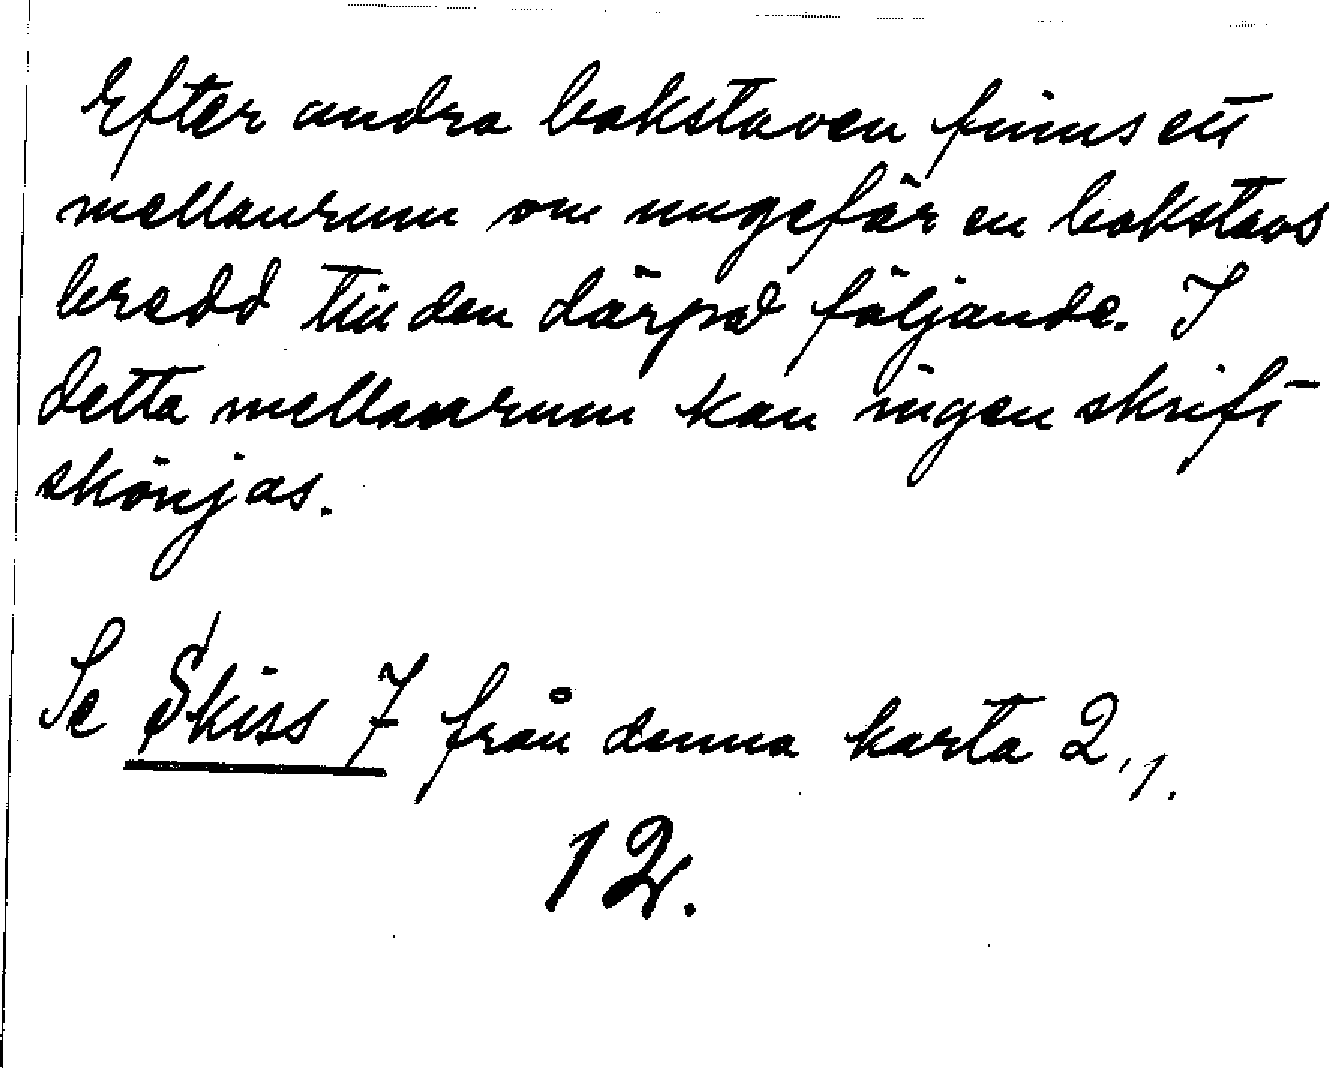 Efter andra bokstaven finns ett
mellanrum om ungefär en bokstavs
bredd till den därpå följande. I
detta mellanrum kan ingen skrift
skönjas.
Se Skiss 7 från denna karta 2,1.
12.